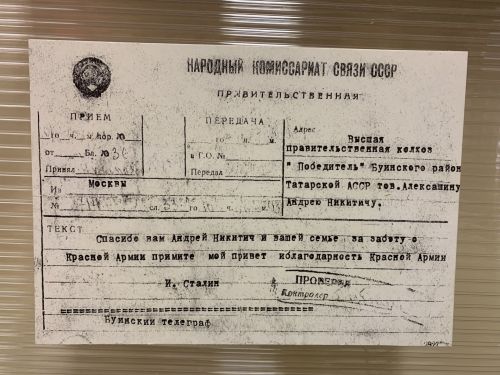 НАРОДНЫЙ КОМИССАРИАТ СВЯЗИ СССР
ПРАВИТЕЛЬСТВЕННАЯ
ПРИЕМ
го ч. м. кор. №
от Бл. № 36
Принял
Из Москвы
№ сл. го ч. м.
ПЕРЕДАЧА
го ч. м.
в Г.О. №
Передал
Адрес
Высшая
правительственная колхоз
"Победитель" Буинского район
Татарской АССР тов.Алексашину
Андрею Никитичу.
ТЕКСТ
Спасибо вам Андрей Никитич и вашей семье за заботу о
Красной Армии примите мой привет иблагодарность Красной Армии
И. Сталин
ПРОВЕРЕН
Контролер
Буинский телеграф